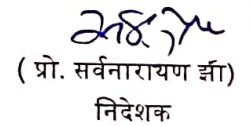 ( प्रो. सर्वनारायण झा)
निदेशक